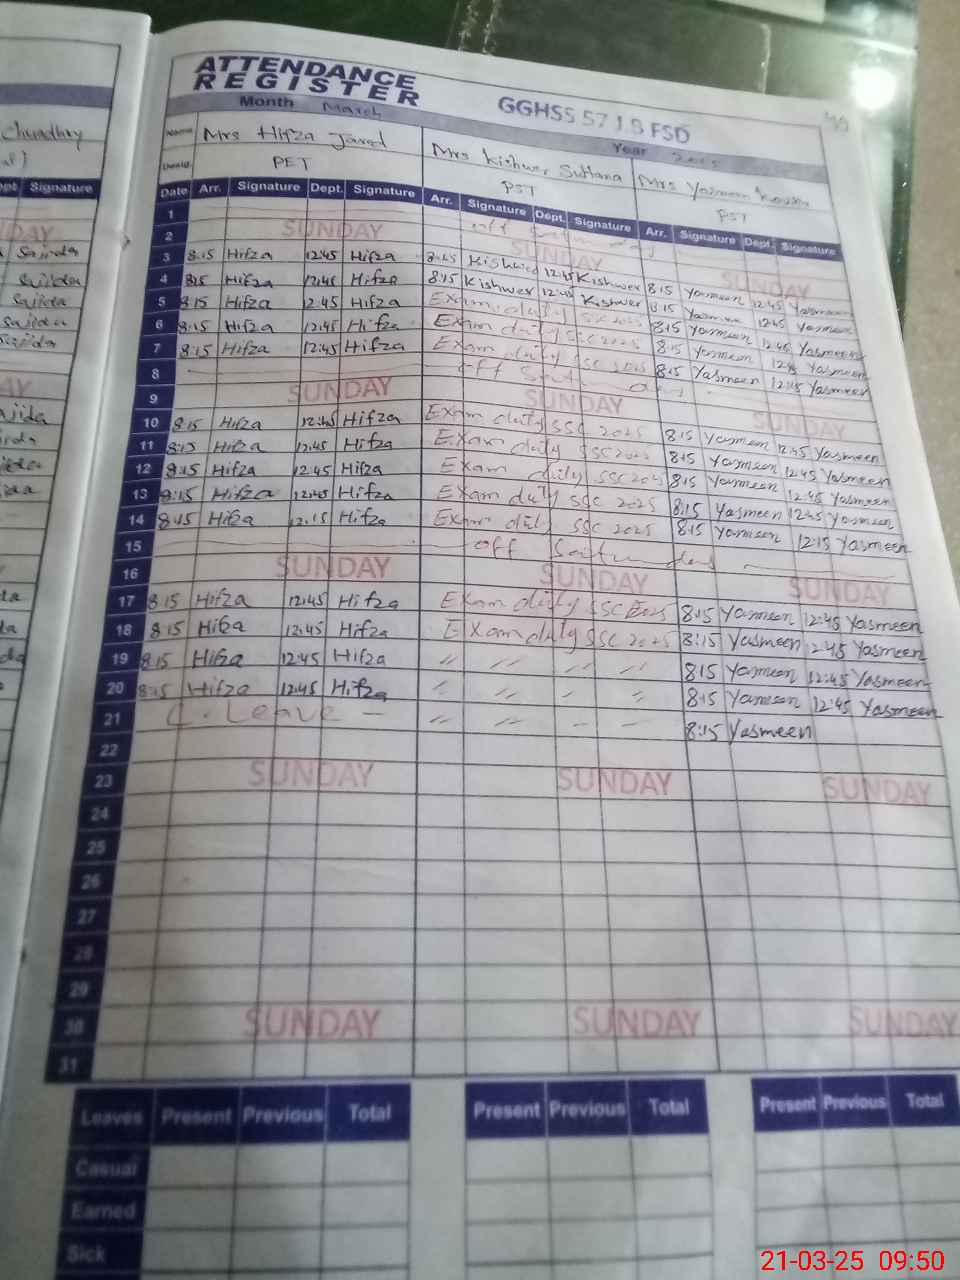 ATTENDANCE
REGISTER
GGHSS 57 J.B FSD
Month March
Year 2025
Chaudhry
Name Mrs Hifza Javed Mrs Kishwer Sultana Mrs Yasmeen
Desig. PET PST PST
Signature
Date Arr. Signature Dept. Signature Arr. Signature Dept. Signature Arr. Signature Dept. Signature
1 off
2 SUNDAY SUNDAY SUNDAY
Sajida 3 8:15 Hifza 12:45 Hifza 8:45 Kishwer 12:45 Kishwer 8:15 Yasmeen 12:45 Yasmeen
Sajida 4 8:15 Hifza 12:45 Hifza 8:15 Kishwer 12:45 Kishwer 8:15 Yasmeen 12:45 Yasmeen
Sajida 5 8:15 Hifza 12:45 Hifza Exam duty SSC 2025 8:15 Yasmeen 12:45 Yasmeen
Sajida 6 8:15 Hifza 12:45 Hifza Exam duty SSC 2025 8:15 Yasmeen Yasmeen
Sajida 7 8:15 Hifza 12:45 Hifza Exam duty SSC 2025 8:15 Yasmeen 12:15 Yasmeen
8 off
9 SUNDAY SUNDAY SUNDAY
Sajida 10 8:15 Hifza 12:45 Hifza Exam duty SSC 2025 8:15 Yasmeen 12:45 Yasmeen
11 8:15 Hifza 12:45 Hifza Exam duty SSC 2025 8:15 Yasmeen 12:45 Yasmeen
12 8:15 Hifza 12:45 Hifza Exam duty SSC 2025 8:15 Yasmeen 12:45 Yasmeen
13 8:15 Hifza 12:45 Hifza Exam duty SSC 2025 8:15 Yasmeen 12:45 Yasmeen
14 8:15 Hifza 12:15 Hifza Exam duty SSC 2025 8:15 Yasmeen 12:15 Yasmeen
15 off
16 SUNDAY SUNDAY SUNDAY
17 8:15 Hifza 12:45 Hifza Exam duty SSC 2025 8:15 Yasmeen 12:45 Yasmeen
18 8:15 Hifza 12:45 Hifza Exam duty SSC 2025 8:15 Yasmeen 12:45 Yasmeen
19 8:15 Hifza 12:45 Hifza " " " " 8:15 Yasmeen 12:45 Yasmeen
20 8:15 Hifza 12:45 Hifza " " " " 8:15 Yasmeen 12:45 Yasmeen
21 C. Leave — " " - - 8:15 Yasmeen
22
23 SUNDAY SUNDAY SUNDAY
24
25
26
27
28
29
30 SUNDAY SUNDAY SUNDAY
31
Leaves Present Previous Total Present Previous Total Present Previous Total
Casual
Earned
Sick
21-03-25 09:50